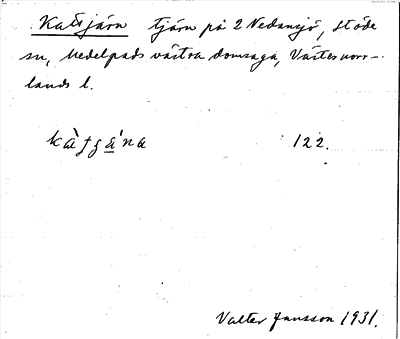 Kattjärn tjärn på 2 Nedansjö, Stöde
sn, Medelpads västra domsaga, Västernorr-
lands l.
122.
Valter Jansson 1931.